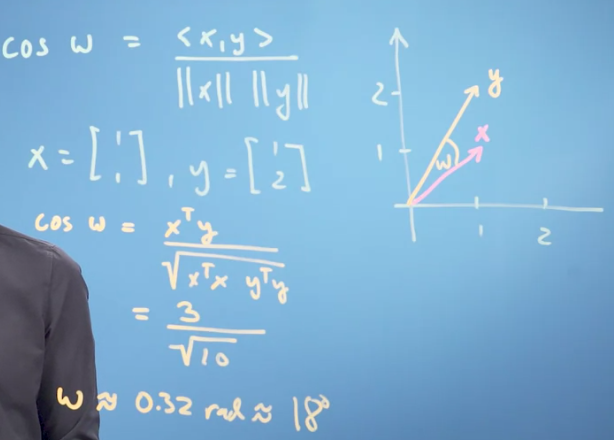 cos ω = <x,y> / ||x|| ||y||
x = [1 1], y = [1 2]
cos ω = xᵀy / √xᵀx yᵀy
= 3 / √10
ω ≈ 0.32 rad ≈ 18°
y
2
x
1
ω
1 2